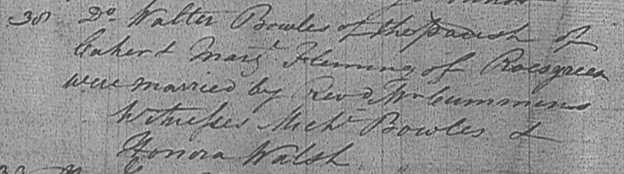 38 Do. Walter Bowles of the parish of
Caher & Margt. Fleming of Roesgreen
were married by Revd. Wm Cummins
Witnesses Michl. Bowles &
Honora Walsh.